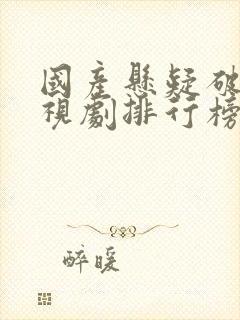 國產懸疑破
視劇排行榜
醉暖